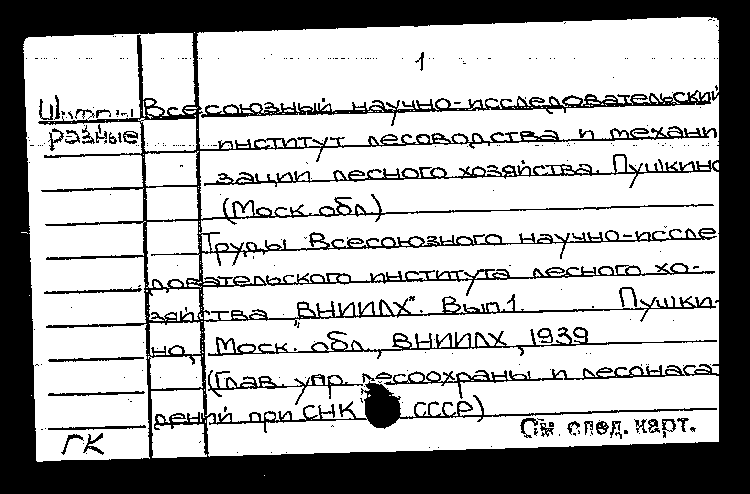 1
Шифры Всесоюзный научно-исследовательский
разные институт лесоводства и механи
зации лесного хозяйства. Пушкино
(Моск. обл.)
Труды Всесоюзного научно-иссле
довательского института лесного хо-
зяйства "ВНИИЛХ". Вып.1. Пушки-
но, Моск. обл., ВНИИЛХ, 1939
(Глав. упр. лесоохраны и лесонасаж
дений при СНК СССР)
ГК См. след. карт.